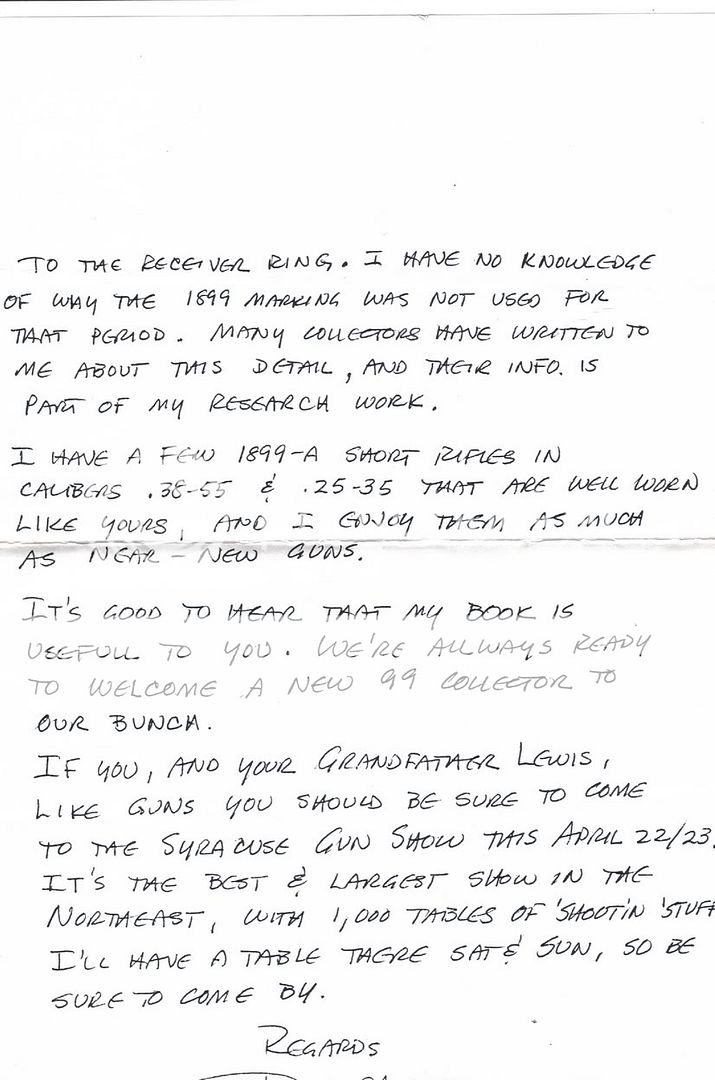 TO THE RECEIVER RING. I HAVE NO KNOWLEDGE
OF WAY THE 1899 MARKING WAS NOT USED FOR
THAT PERIOD. MANY COLLECTORS HAVE WRITTEN TO
ME ABOUT THIS DETAIL, AND THEIR INFO. IS
PART OF MY RESEARCH WORK.
I HAVE A FEW 1899-A SHORT RIFLES IN
CALIBERS .38-55 & .25-35 THAT ARE WELL WORN
LIKE YOURS, AND I ENJOY THEM AS MUCH
AS NEAR-NEW GUNS.
IT'S GOOD TO HEAR THAT MY BOOK IS
USEFULL TO YOU. WE'RE ALLWAYS READY
TO WELCOME A NEW 99 COLLECTOR TO
OUR BUNCH.
IF YOU, AND YOUR GRANDFATHER LEWIS,
LIKE GUNS YOU SHOULD BE SURE TO COME
TO THE SYRACUSE GUN SHOW THIS APRIL 22/23.
IT'S THE BEST & LARGEST SHOW IN THE
NORTHEAST, WITH 1,000 TABLES OF 'SHOOTIN 'STUFF
I'LL HAVE A TABLE THERE SAT & SUN, SO BE
SURE TO COME BY.
REGARDS